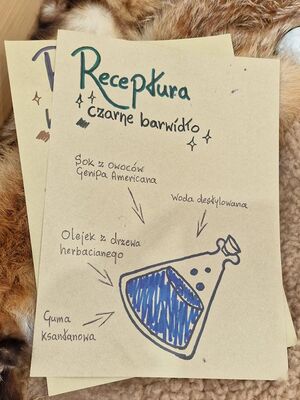 Receptura
czarne barwidło
Sok z owoców
Genipa Americana
woda destylowana
Olejek z drzewa
herbacianego
Guma
Ksantanowa